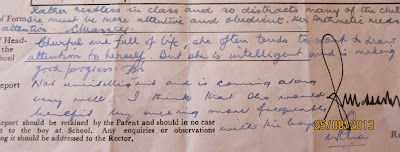 rather restless in class and so distracts many of the
of Form She must be more attentive and obedient. Her Arithmetic needs
attention.
of Head- Cheerful and full of life, she often tends to want to draw
the attention to herself. But she is intelligent and is making
School good progress.
eport Not unintelligent and is coming along
very well. I think that she would
benefit by mixing more frequently
with the
Report should be retained by the Parent and should in no case
t to the boy at School. Any enquiries or observations
ng it should be addressed to the Rector,
25/06/2013